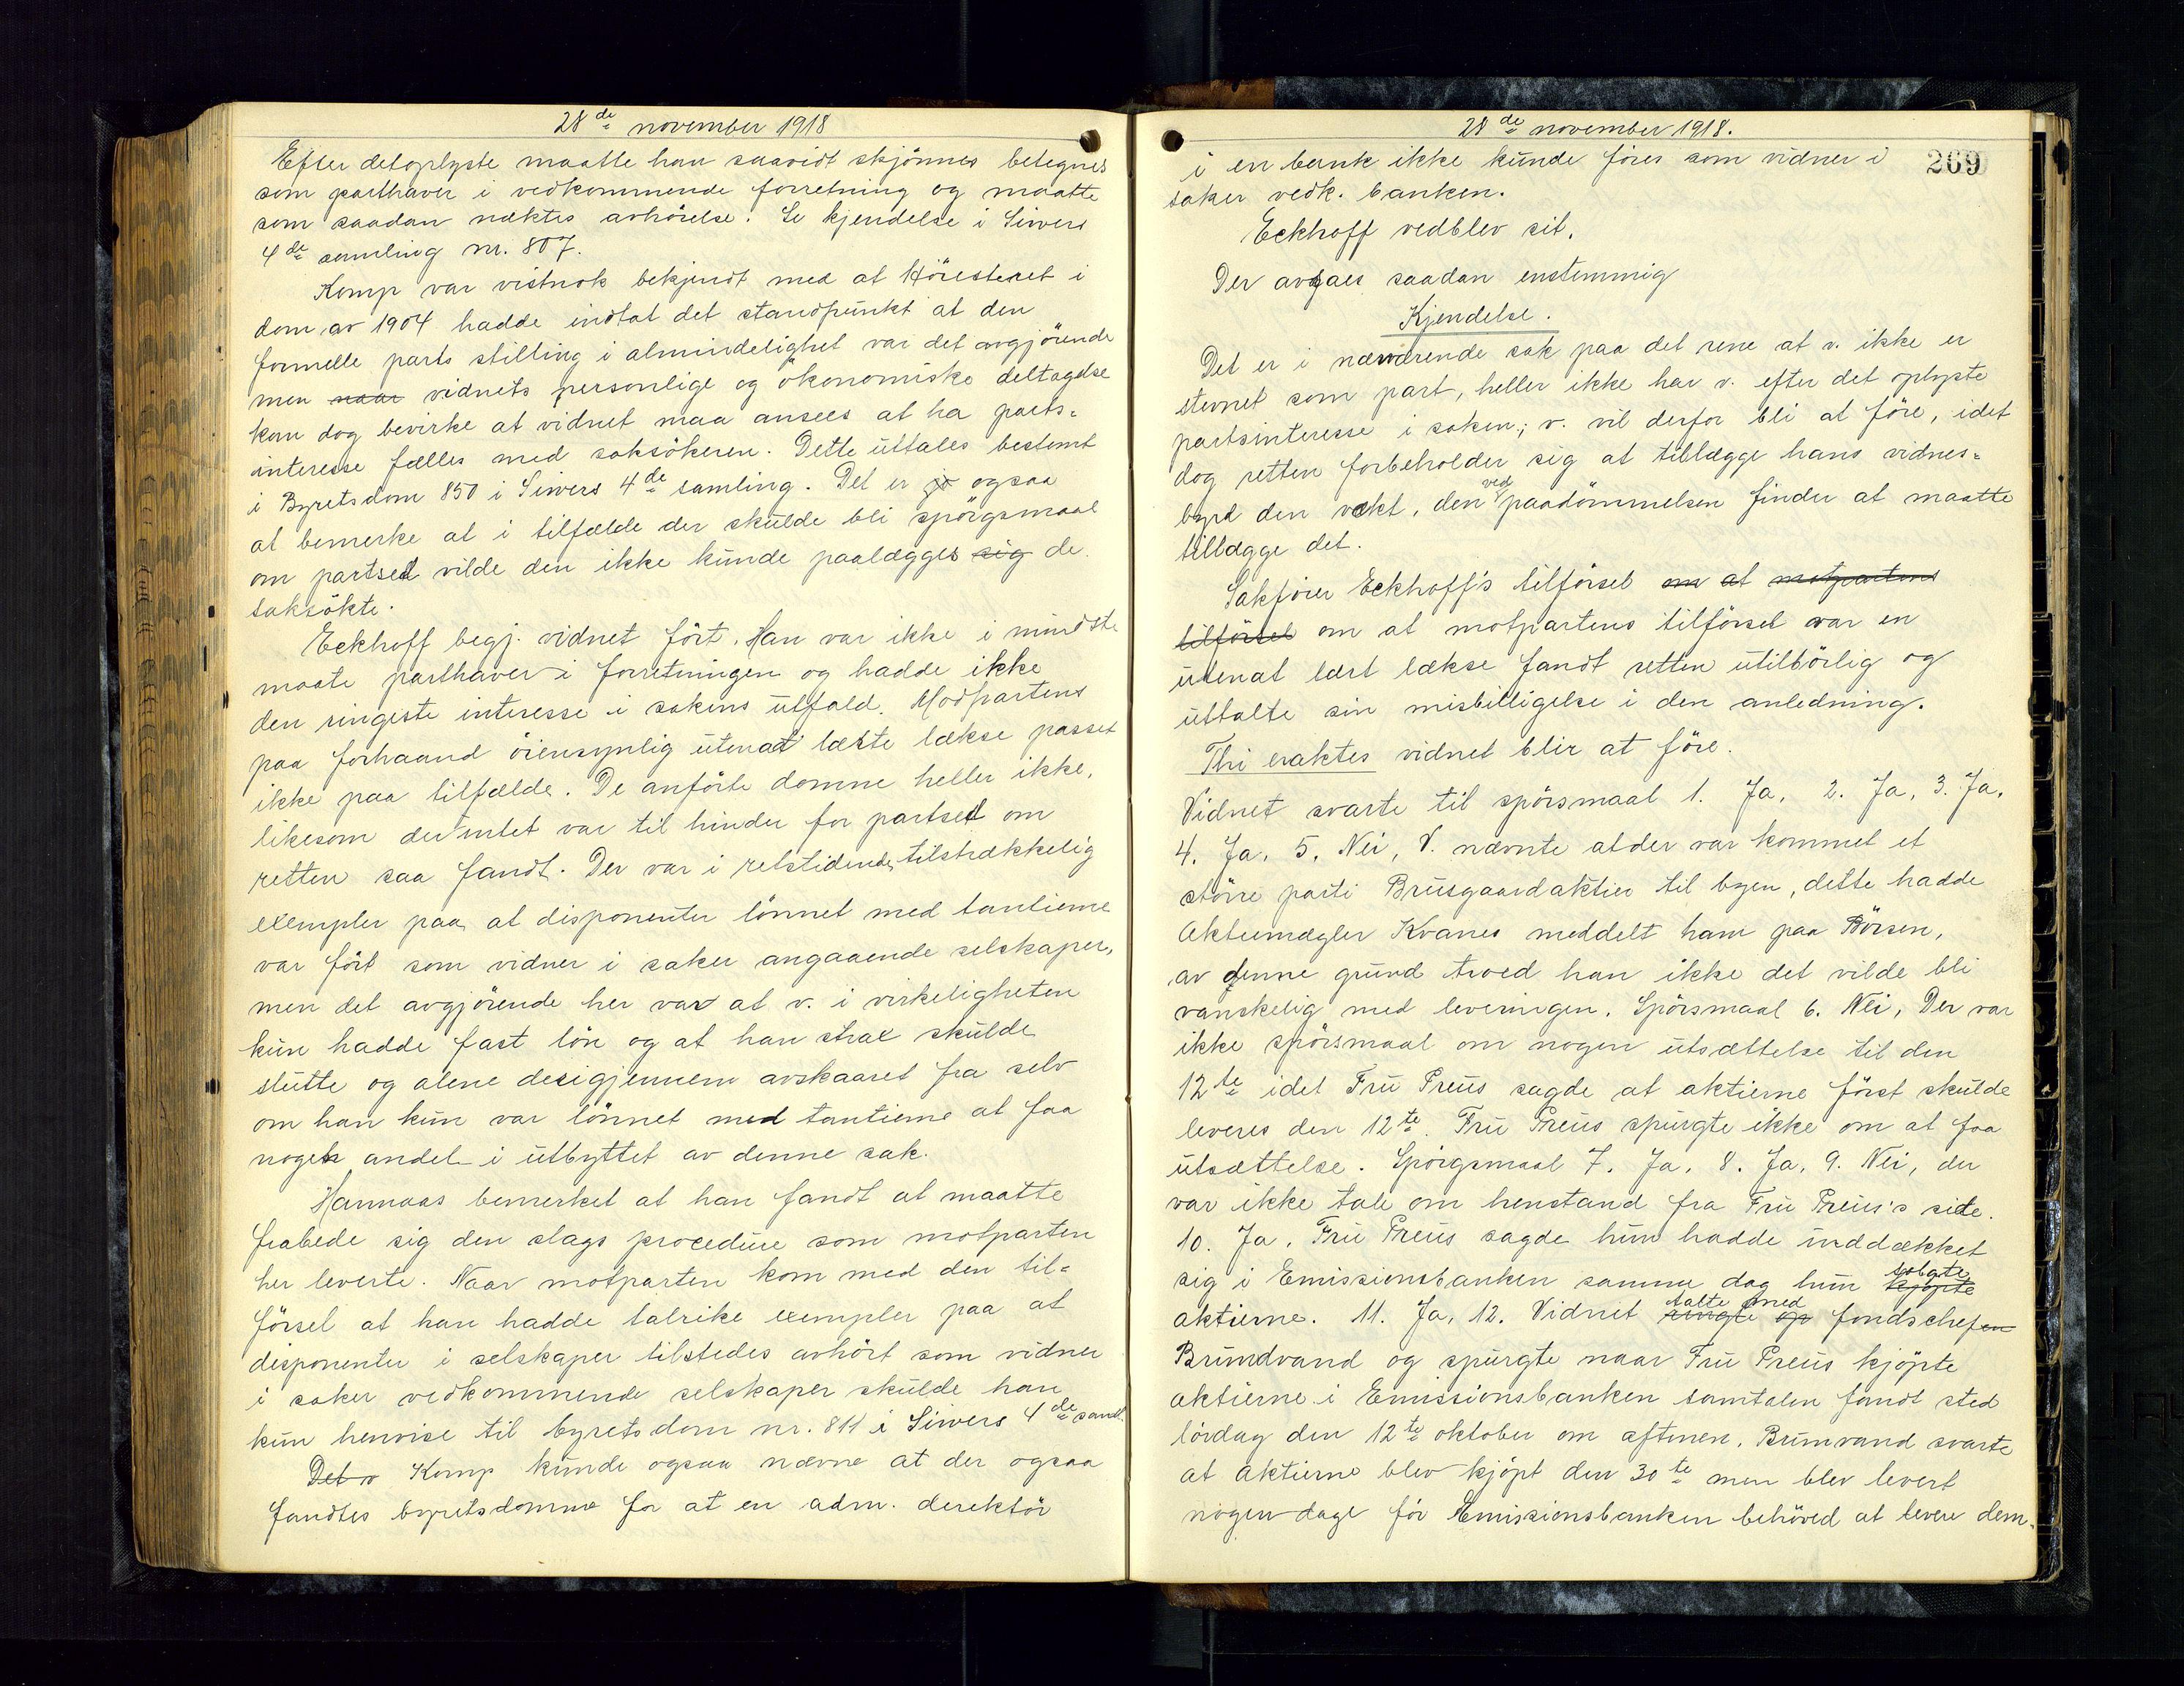 28de november 1918
Efter det oplyste maatte han saavidt skjönnes betegnes
som parthaver i vedkommende forretning og maatte
som saadan nektes avhörelse. Se kjendelse i Siwers
4de samling nr. 807.
Komp var vistnok bekjendt med at Höiesteret i
dom av 1904 hadde indtat det standpunkt at den
formelle parts stilling i almindelighet var det avgjörende
men naar vidnets personlige og ökonomiske deltagelse
kan dog bevirke at vidnet maa ansees at ha parts-
interesse fælles med saksökeren. Dette uttales bestemt
i Byretsdom 850 i Siwers 4de samling. Det er jo ogsaa
at bemerke at i tilfælde der skulde bli spörgsmaal
om partsed vilde den ikke kunde paalægges sig de
saksökte.
Eckhoff begj. vidnet fört. Han var ikke i mindste
maate parthaver i forretningen og hadde ikke
den ringeste interesse i sakens utfald. Modpartens
paa forhaand öiensynlig utenat læste lækse passet
ikke paa tilfælde. De anförte domme heller ikke,
likesom der intet var til hinder for partsed om
retten saa fandt. Der var i retstidende tilstrækkelig
exempler paa at disponenter lönnet med tantieme
var fört som vidner i saker angaaende selskaper,
men det avgjörende her var at v. i virkeligheten
kun hadde fast lön og at han strax skulde
slutte og alene derigjennem avskaaret fra selv
om han kun var lönnet med tantieme at faa
nogen andel i utbyttet av denne sak.
Hannaas bemerket at han fandt at maatte
frabede sig den slags procedure som motparten
her leverte. Naar motparten kom med den til-
försel at han hadde talrike exempler paa at
disponenter i selskaper tilstedes avhört som vidner
i saker vedkommende selskaper skulde han
kun henvise til byretsdom nr. 811 i Siwers 4de saml.
Det v Komp kunde ogsaa nævne at der ogsaa
fandtes byretsdomme for at en adm. derektör
28de november 1918.
269
i en bank ikke kunde föres som vidner i
saker vedk. banken.
Eckhoff vedblev sit.
Der avsaes saadan enstemmig
Kjendelse.
Det er i nærværende sak paa det rene at v. ikke er
stevnet som part, heller ikke har v. efter det oplyste
partsinteresse i saken; v. vil derfor bli at före, idet
dog retten forbeholder sig at tillægge hans vidnes-
byrd den vekt, den ved paadömmelsen finder at maatte
tillægge det.
Sakförer Eckhoff's tilförsel om at motpartens
tilförsel om at motpartens tilförsel var en
utenat lært lækse fandt retten utilbörlig og
uttalte sin misbilligelse i den anledning.
Thi eraktes vidnet blir at före.
Vidnet svarte til spörsmaal 1. Ja, 2. Ja, 3. Ja.
4. Ja. 5. Nei, V. nævnte at der var kommet et
större parti Brusgaardaktier til byen, dette hadde
Aktiemægler Kvanes meddelt ham paa Börsen,
av denne grund troed han ikke det vilde bli
vanskelig med leveringen. Spörsmaal 6. Nei, Der var
ikke spörsmaal om nogen utsættelse til den
12te idet Fru Preus sagde at aktierne först skulde
leveres den 12te. Fru Preus spurgte ikke om at faa
utsættelse. Spörgsmaal 7. Ja, 8. Ja, 9. Nei, der
var ikke tale om henstand fra Fru Preus's side.
10. Ja. Fru Preus sagde hun hadde inddækket
sig i Emissionsbanken samme dag hun kjöpte solgte
aktierne. 11. Ja, 12. Vidnet ringte op talte med fondschefen
Brundvand og spurgte naar Fru Preus kjöpte
aktierne i Emissionsbanken samtalen fandt sted
lördag den 12te oktober om aftenen. Brunvand svarte
at aktierne blev kjöpt den 30te men blev levert
nogen dage för Emissionsbanken behöved at levere dem.